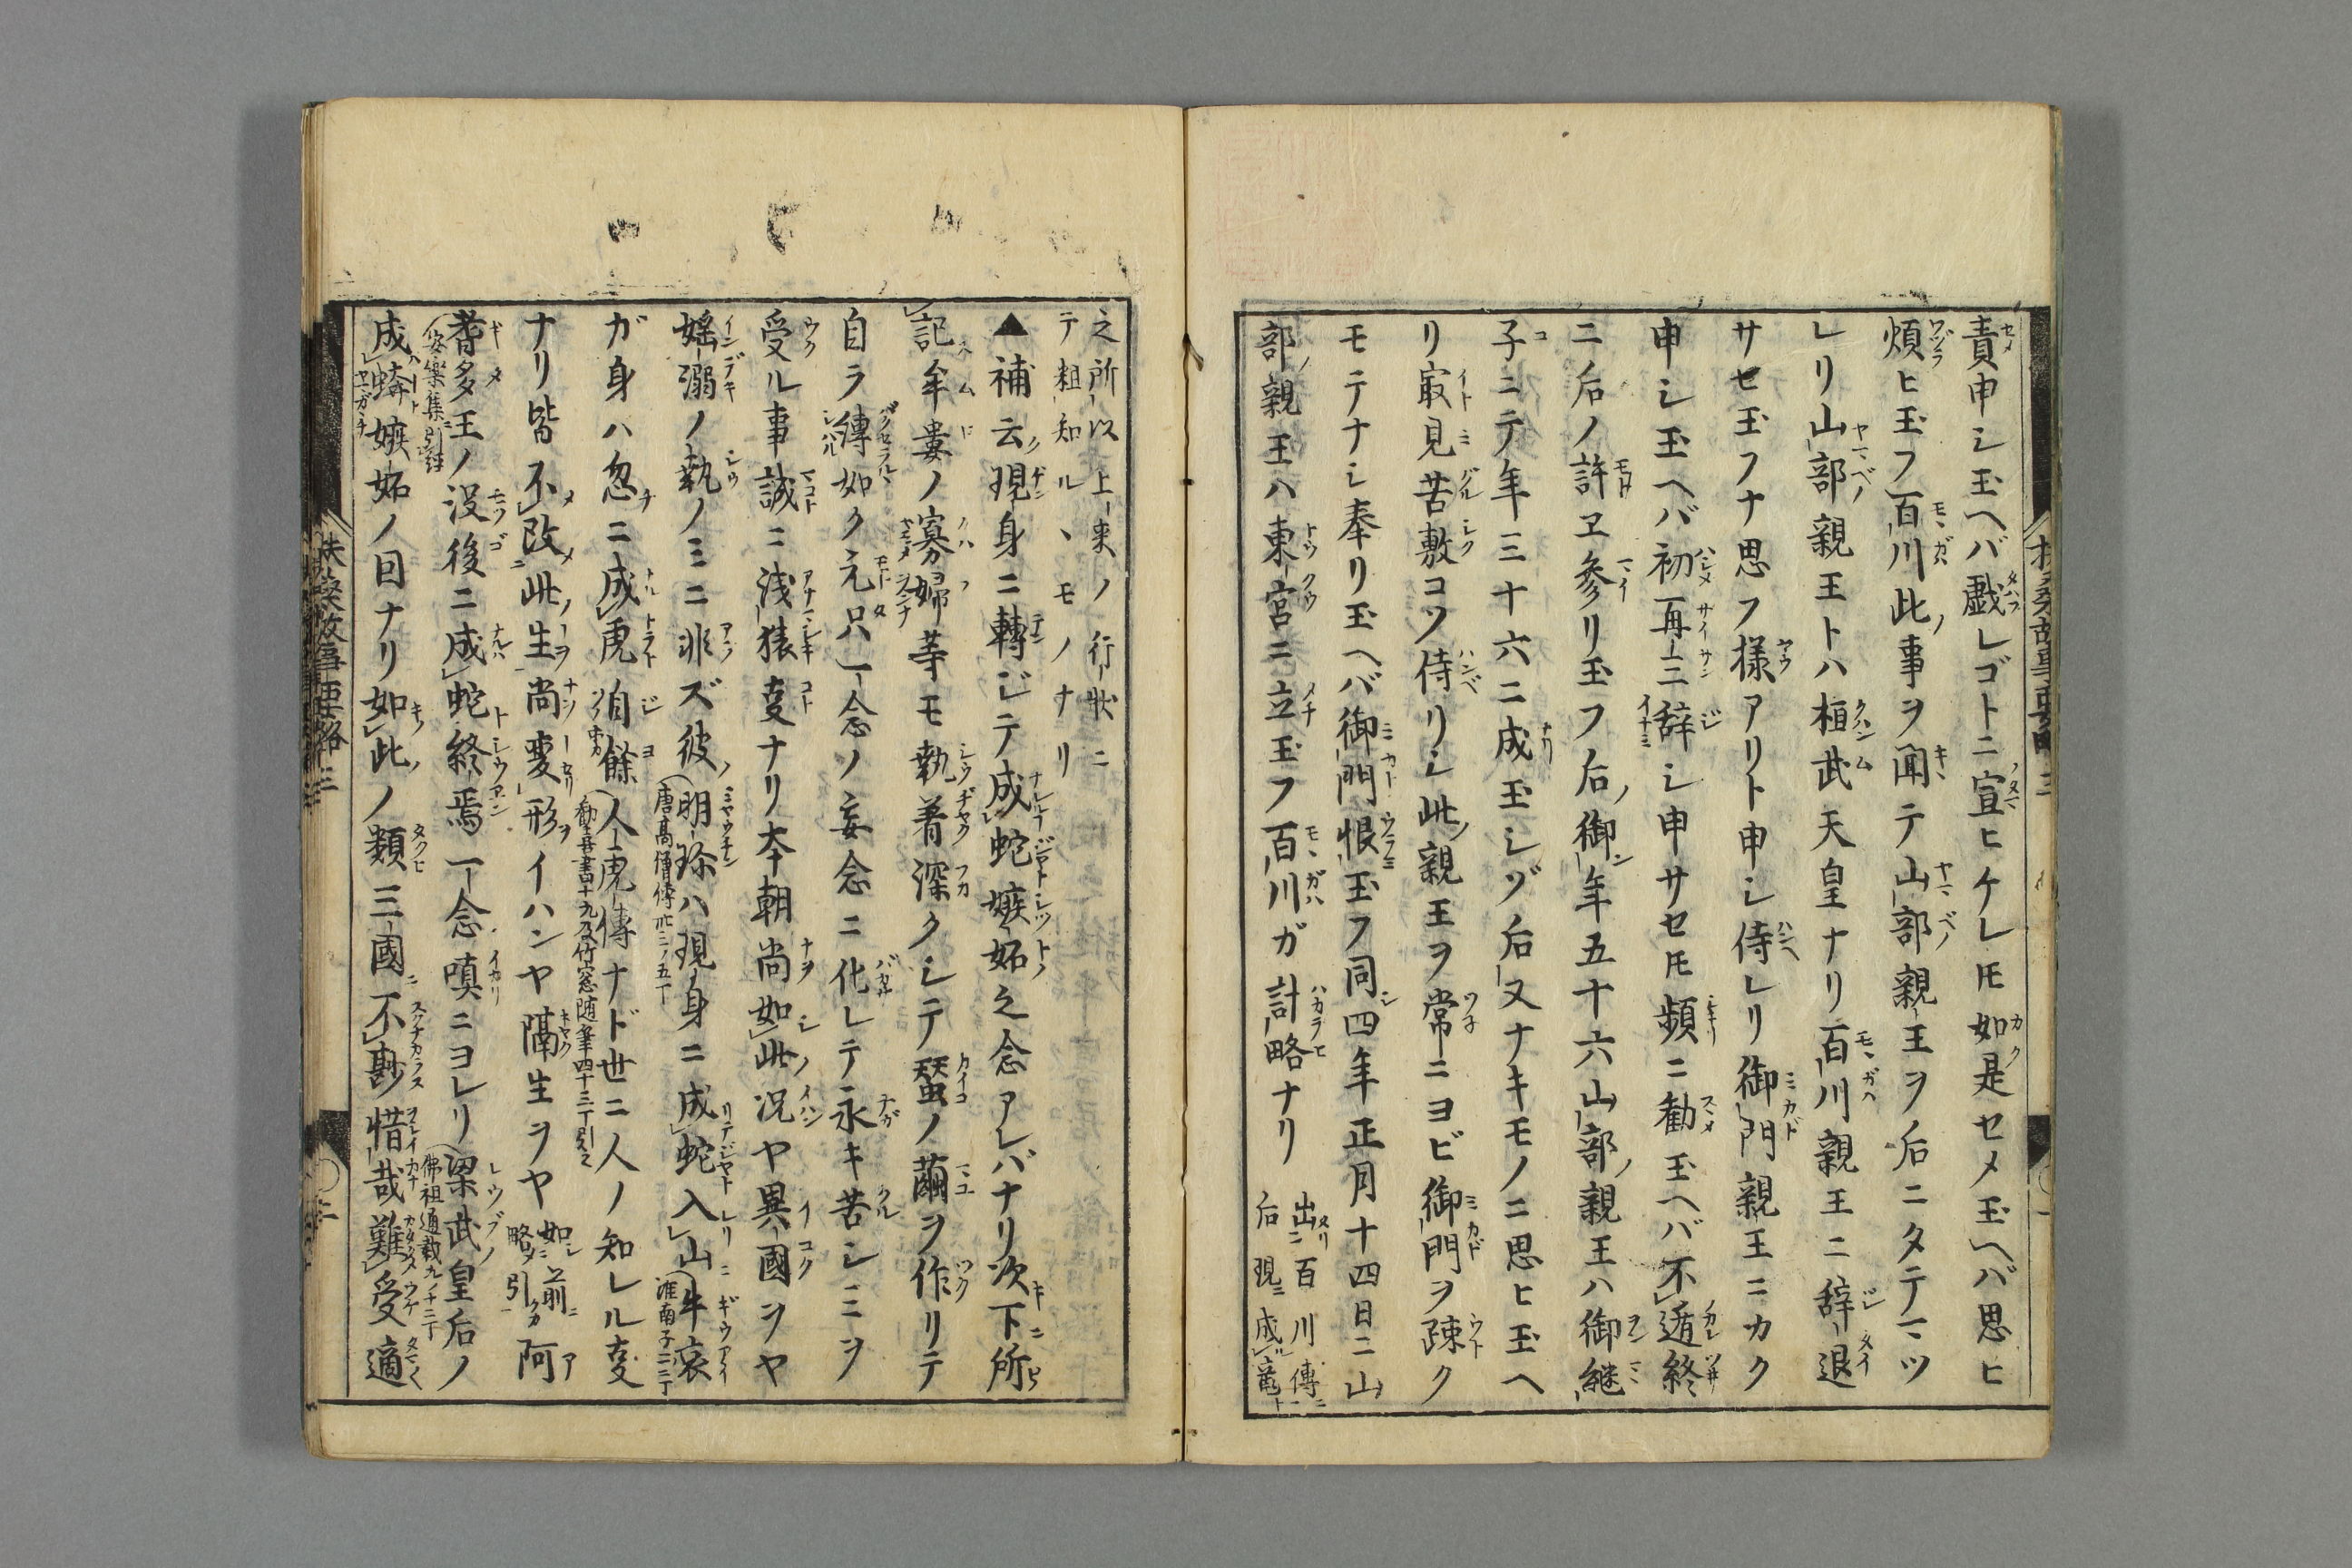 責申シ玉ヘバ戯レゴトニ宣ヒケレ𪜈如是セメ玉ヘバ思ヒ
煩ヒ玉フ百川此事ヲ聞テ山部親王ヲ后ニタテマツ
レリ山部親王トハ桓武天皇ナリ百川親王ニ辞退
サセ玉フナ思フ様アリト申シ侍レリ御門親王ニカク
申シ玉ヘバ初再三辞シ申サセ𪜈頻ニ勧玉ヘバ不遁終
ニ后ノ許ヱ参リ玉フ后ノ御年五十六山部ノ親王ハ御継
子ニテ年三十六ニ成玉シヅ后又ナキモノニ思ヒ玉ヘ
リ寂見苦敷コソ侍リシ此親王ヲ常ニヨビ御門ヲ疎ク
モテナシ奉リ玉ヘバ御門恨玉フ同四年正月十四日ニ山
部親王ハ東宮ニ立玉フ百川ガ計略ナリ
出百川傳
后現成竜
之所以上来ノ行状ニ
テ粗知ルヽモノナリ
▲補云現身ニ轉ジテ成蛇嫉妬之念アレバナリ次下所
記牟婁ノ寡婦等モ執着深クシテ蚕ノ繭ヲ作リテ
自ラ縛如ク元只一念ノ妄念ニ化レテ永キ苦シミヲ
受ル事誠ニ浅猿叓ナリ本朝尚如此況ヤ異國ヲヤ
婬溺ノ執ノミニ非ズ彼明琛ハ現身ニ成蛇入山牛哀
唐高僧傳卅三ノ五丁
淮南子二三丁
ガ身ハ忽ニ成虎自餘人虎傳ナド世ニ人ノ知レル叓
勸善書十九及竹窓随筆四十三丁引之
ナリ皆不改此生尚変形イハンヤ隔生ヲヤ如前略引阿
耆多王ノ没後ニ成蛇終焉一念嗔ニヨレリ梁武皇后ノ
安樂集引註
佛祖通載九ノ十二丁
成蟒嫉妬ノ因ナリ如此ノ類三國不尠惜哉難受適
扶桑故事要略三